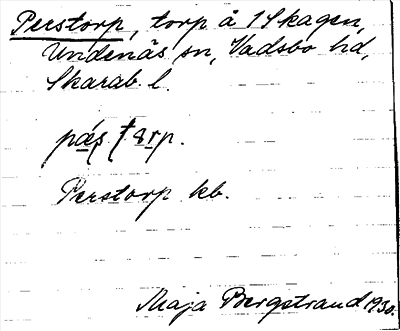 Perstorp, torp å 1 Skagen,
Undenäs sn, Vadsbo hd,
Skarab l.
Perstorp kb.
Maja Bergstrand 1930.